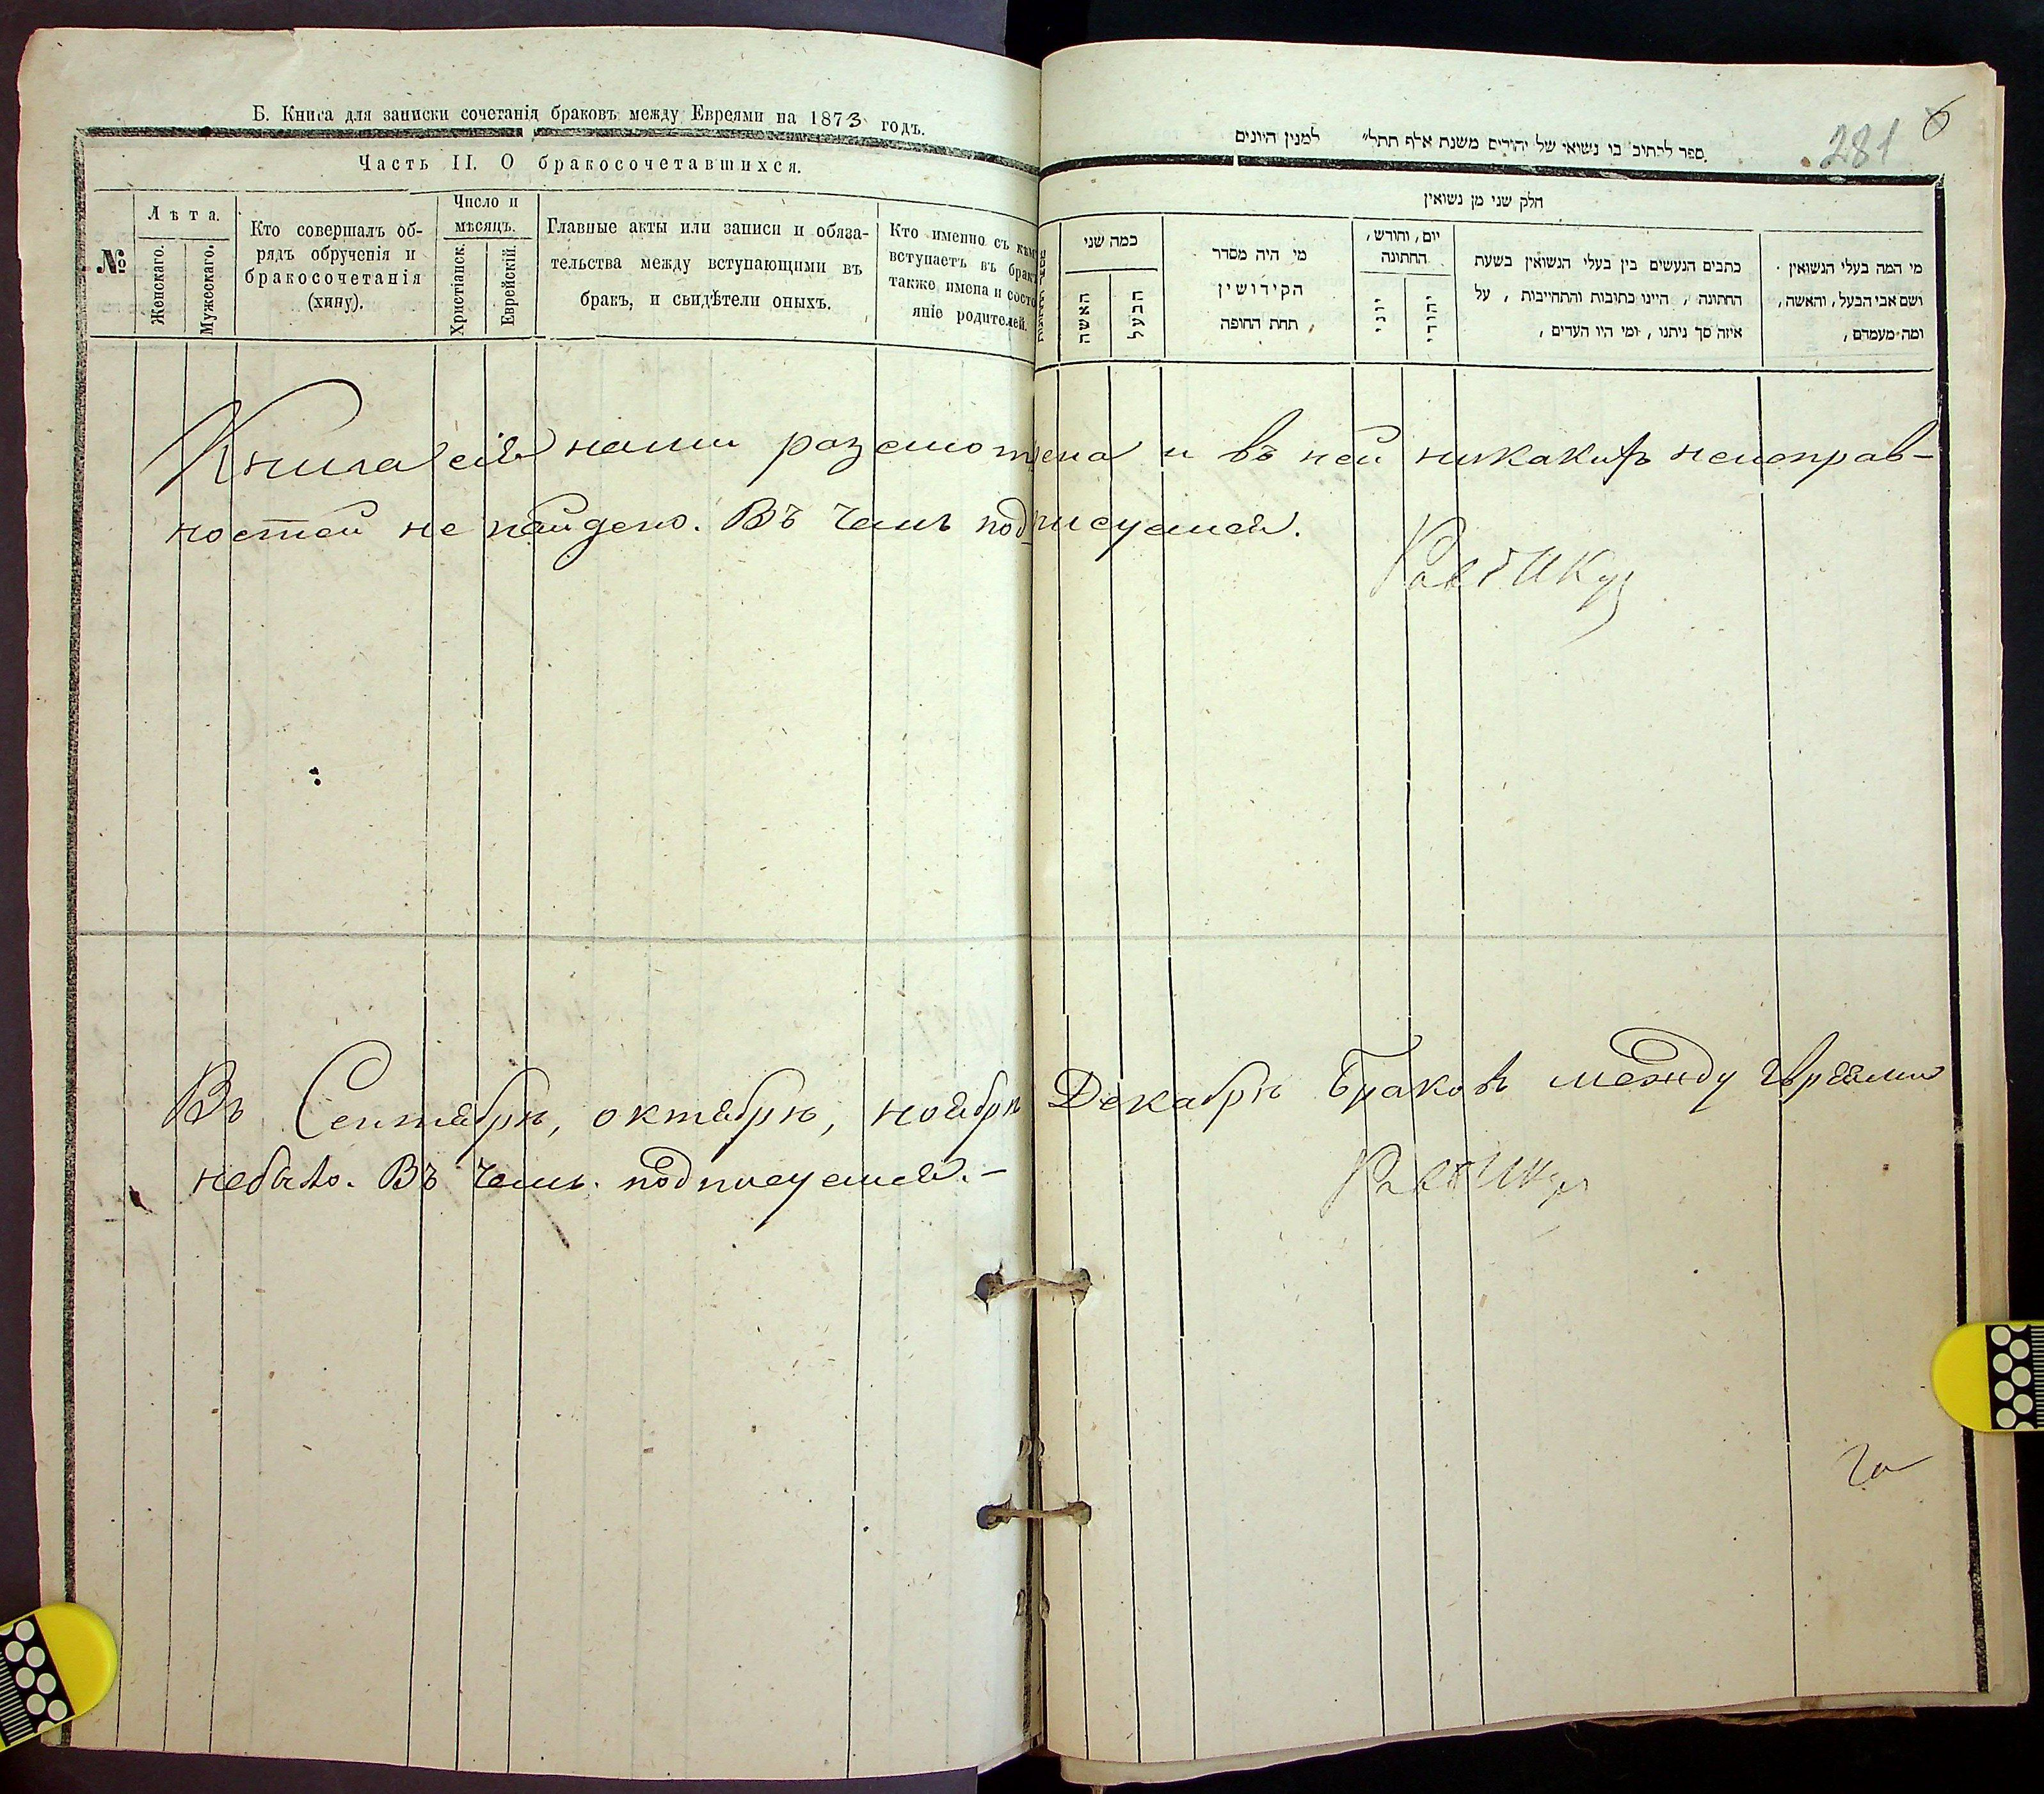 Б. Книга для записки сочетанія браковъ между Евреями на 1873 годъ.
Часть II. О бракосочетавшихся.
№
Лѣта.
Женскаго.
Мужескаго.
Кто совершалъ об-
рядъ обрученія и
бракосочетанія
(хипу).
Число и
мѣсяцъ.
Христіанск.
Еврейскій.
Главные акты или записи и обяза-
тельства между вступающими въ
бракъ, и свидѣтели оныхъ.
Кто именно съ кѣмъ
вступаетъ въ бракъ
также имена и состо
яніе родителей.
281
6
ספר לכתוב בו נשואי של יהודים משנת אלף תתל״ למנין היונים
חלק שני מן נשואין
כמה שני
האשה
הבעל
מי היה מסדר
הקידושין
תחת החופה
יום, וחודש,
החתונה
יוני
יהודי
כתבים הנעשים בין בעלי הנשואין בשעת
החתונה, היינו כתובות והתחייבות, על
איזה סך ניתנו, ומי היו העדים,
מי המה בעלי הנשואין
ושם אבי הבעל, והאשה,
ומה מעמדם,
Книга сія нами разсмотрена и въ ней никакихъ неисправ-
ностей не найдено. Въ чемъ подписуемся.
Въ Сентябрѣ, октябрѣ, ноябрѣ Декабрѣ браковъ между Евреями
небыло. Въ чемъ подписуемся.-